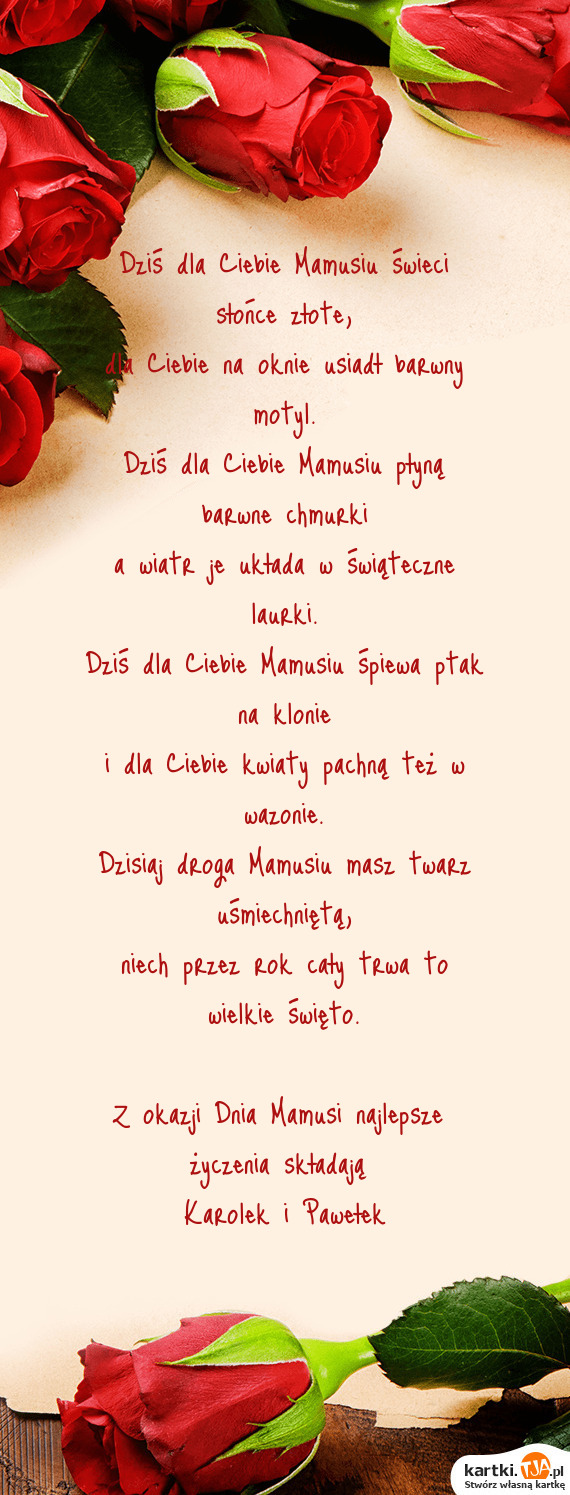 Dziś dla Ciebie Mamusiu świeci
słońce złote,
dla Ciebie na oknie usiadł barwny
motyl.
Dziś dla Ciebie Mamusiu płyną
barwne chmurki
a wiatr je układa w świąteczne
laurki.
Dziś dla Ciebie Mamusiu śpiewa ptak
na klonie
i dla Ciebie kwiaty pachną też w
wazonie.
Dzisiaj droga Mamusiu masz twarz
uśmiechniętą,
niech przez rok cały trwa to
wielkie święto.
Z okazji Dnia Mamusi najlepsze
życzenia składają
Karolek i Pawełek
kartki.TJA.pl
Stwórz własną kartkę